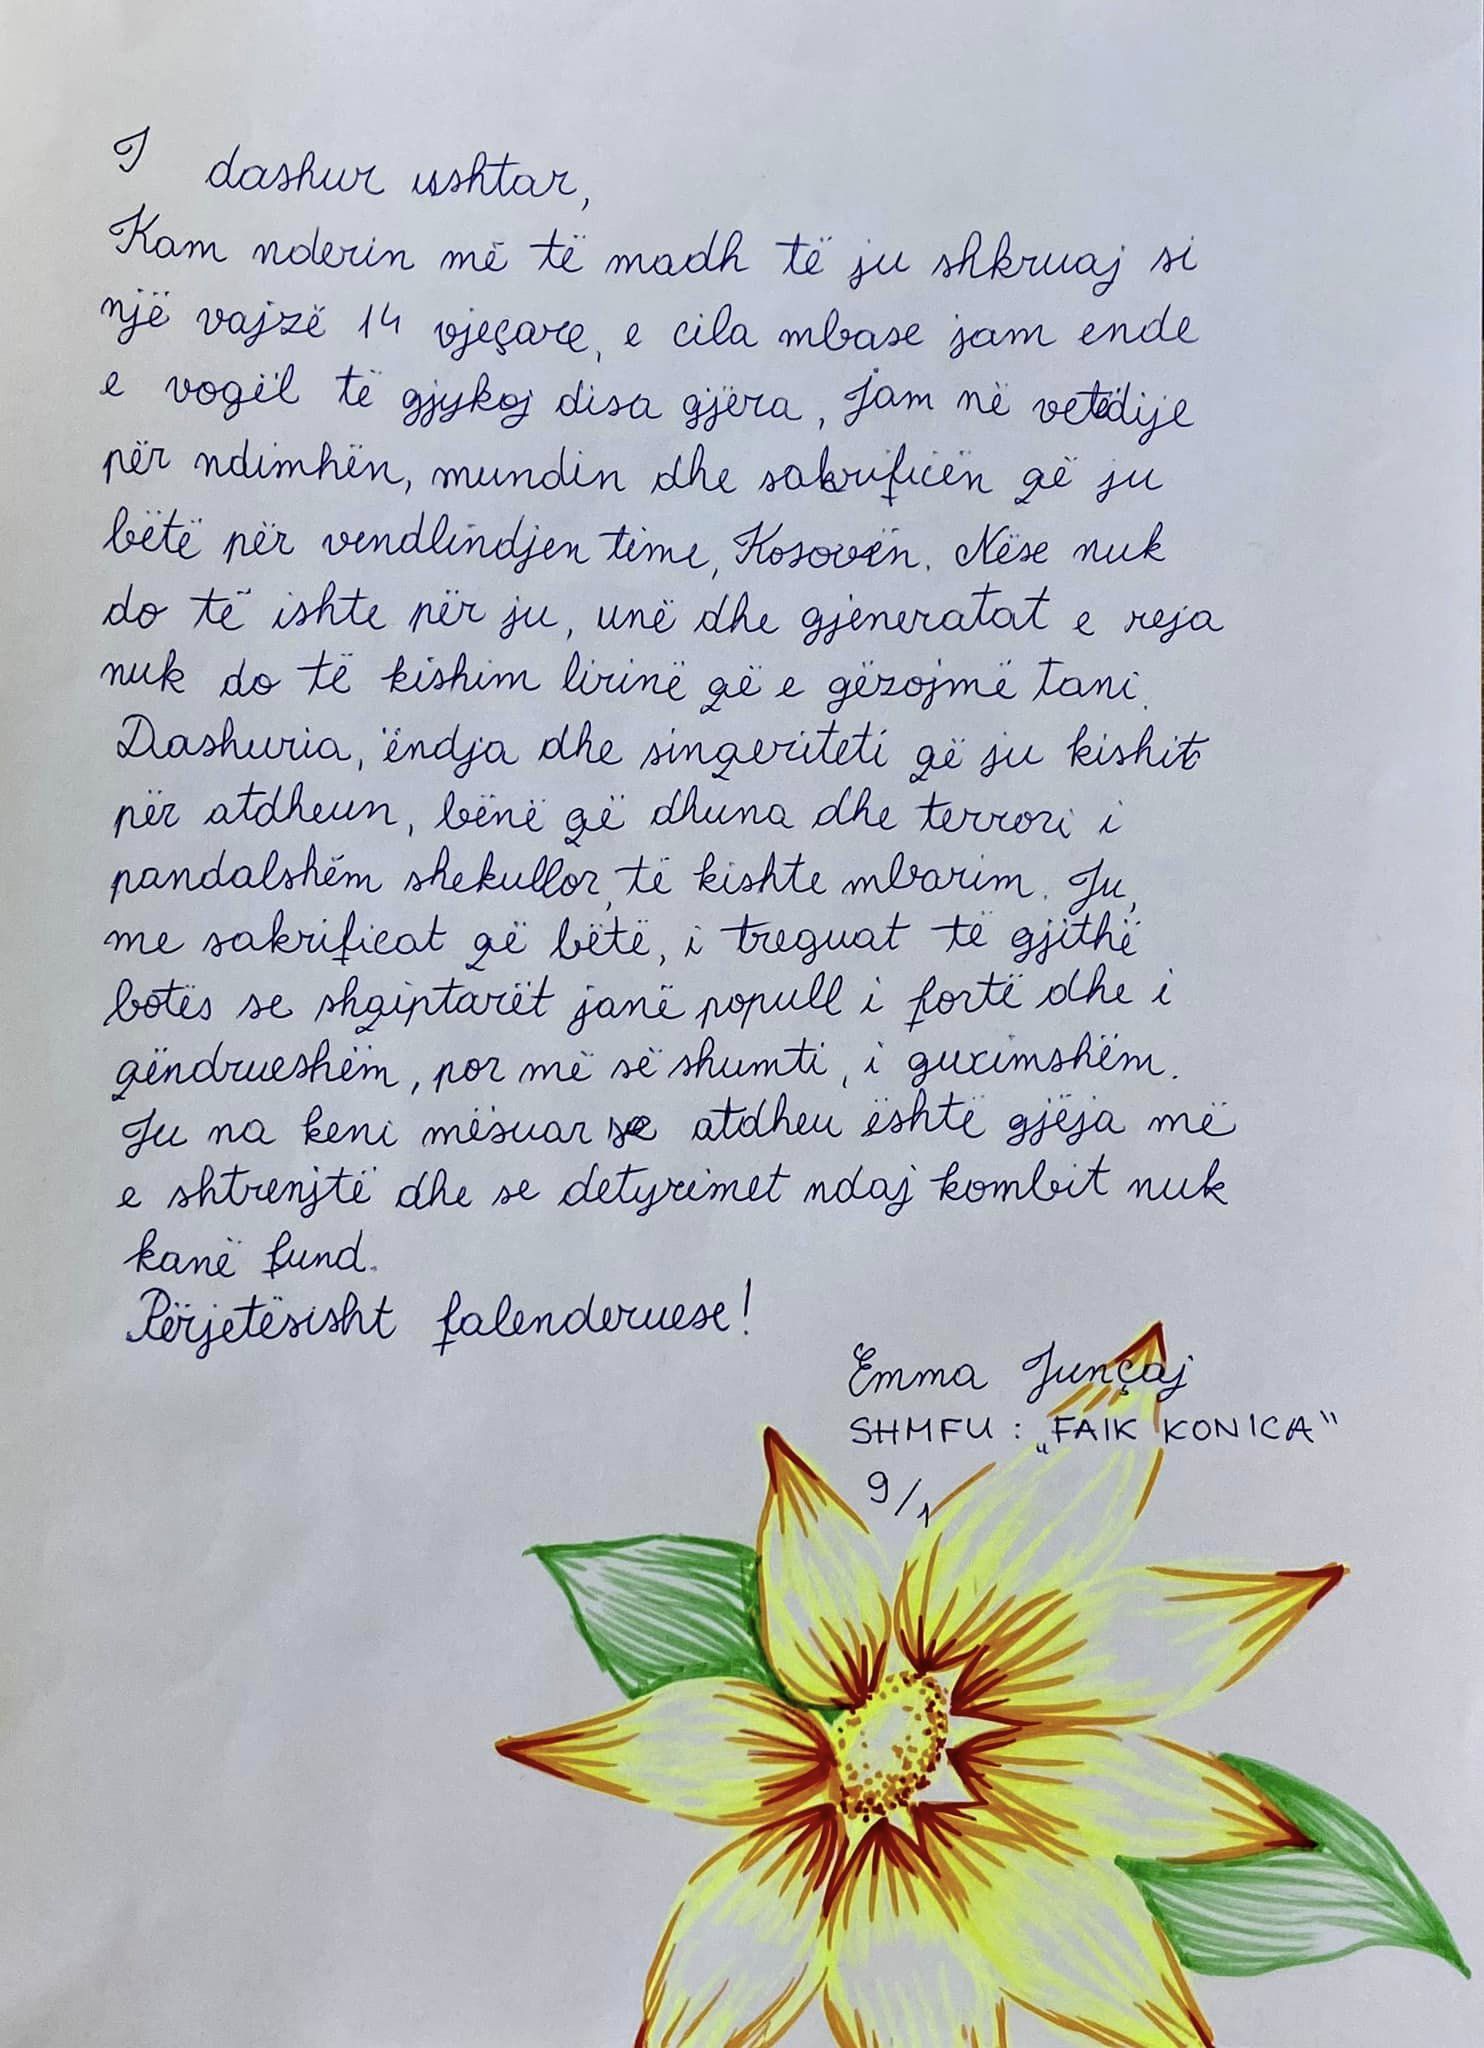 I dashur ushtar,
Kam nderin më të madh të ju shkruaj si
një vajzë 14 vjeçare, e cila mbase jam ende
e vogël të gjykoj disa gjëra, jam në vetëdije
për ndimhën, mundin dhe sakrificën që ju
bëtë për vendlindjen time, Kosovën. Nëse nuk
do të ishte për ju, unë dhe gjeneratat e reja
nuk do të kishim lirinë që e gëzojmë tani.
Dashuria, ëndja dhe singeriteti që ju kishit
për atdheun, bënë që dhuna dhe terrori i
pandalshëm shekullor, të kishte mbarim. Ju,
me sakrificat që bëtë, i treguat të gjithë
botës se shqiptarët janë popull i fortë dhe i
qëndrueshëm, por më së shumti, i guximshëm.
Ju na keni mësuar se atdheu është gjëja më
e shtrenjtë dhe se detyrimet ndaj kombit nuk
kanë fund.
Përjetësisht falenderuese!
Emma Junçaj
SHMFU : „FAIK KONICA“
9/1